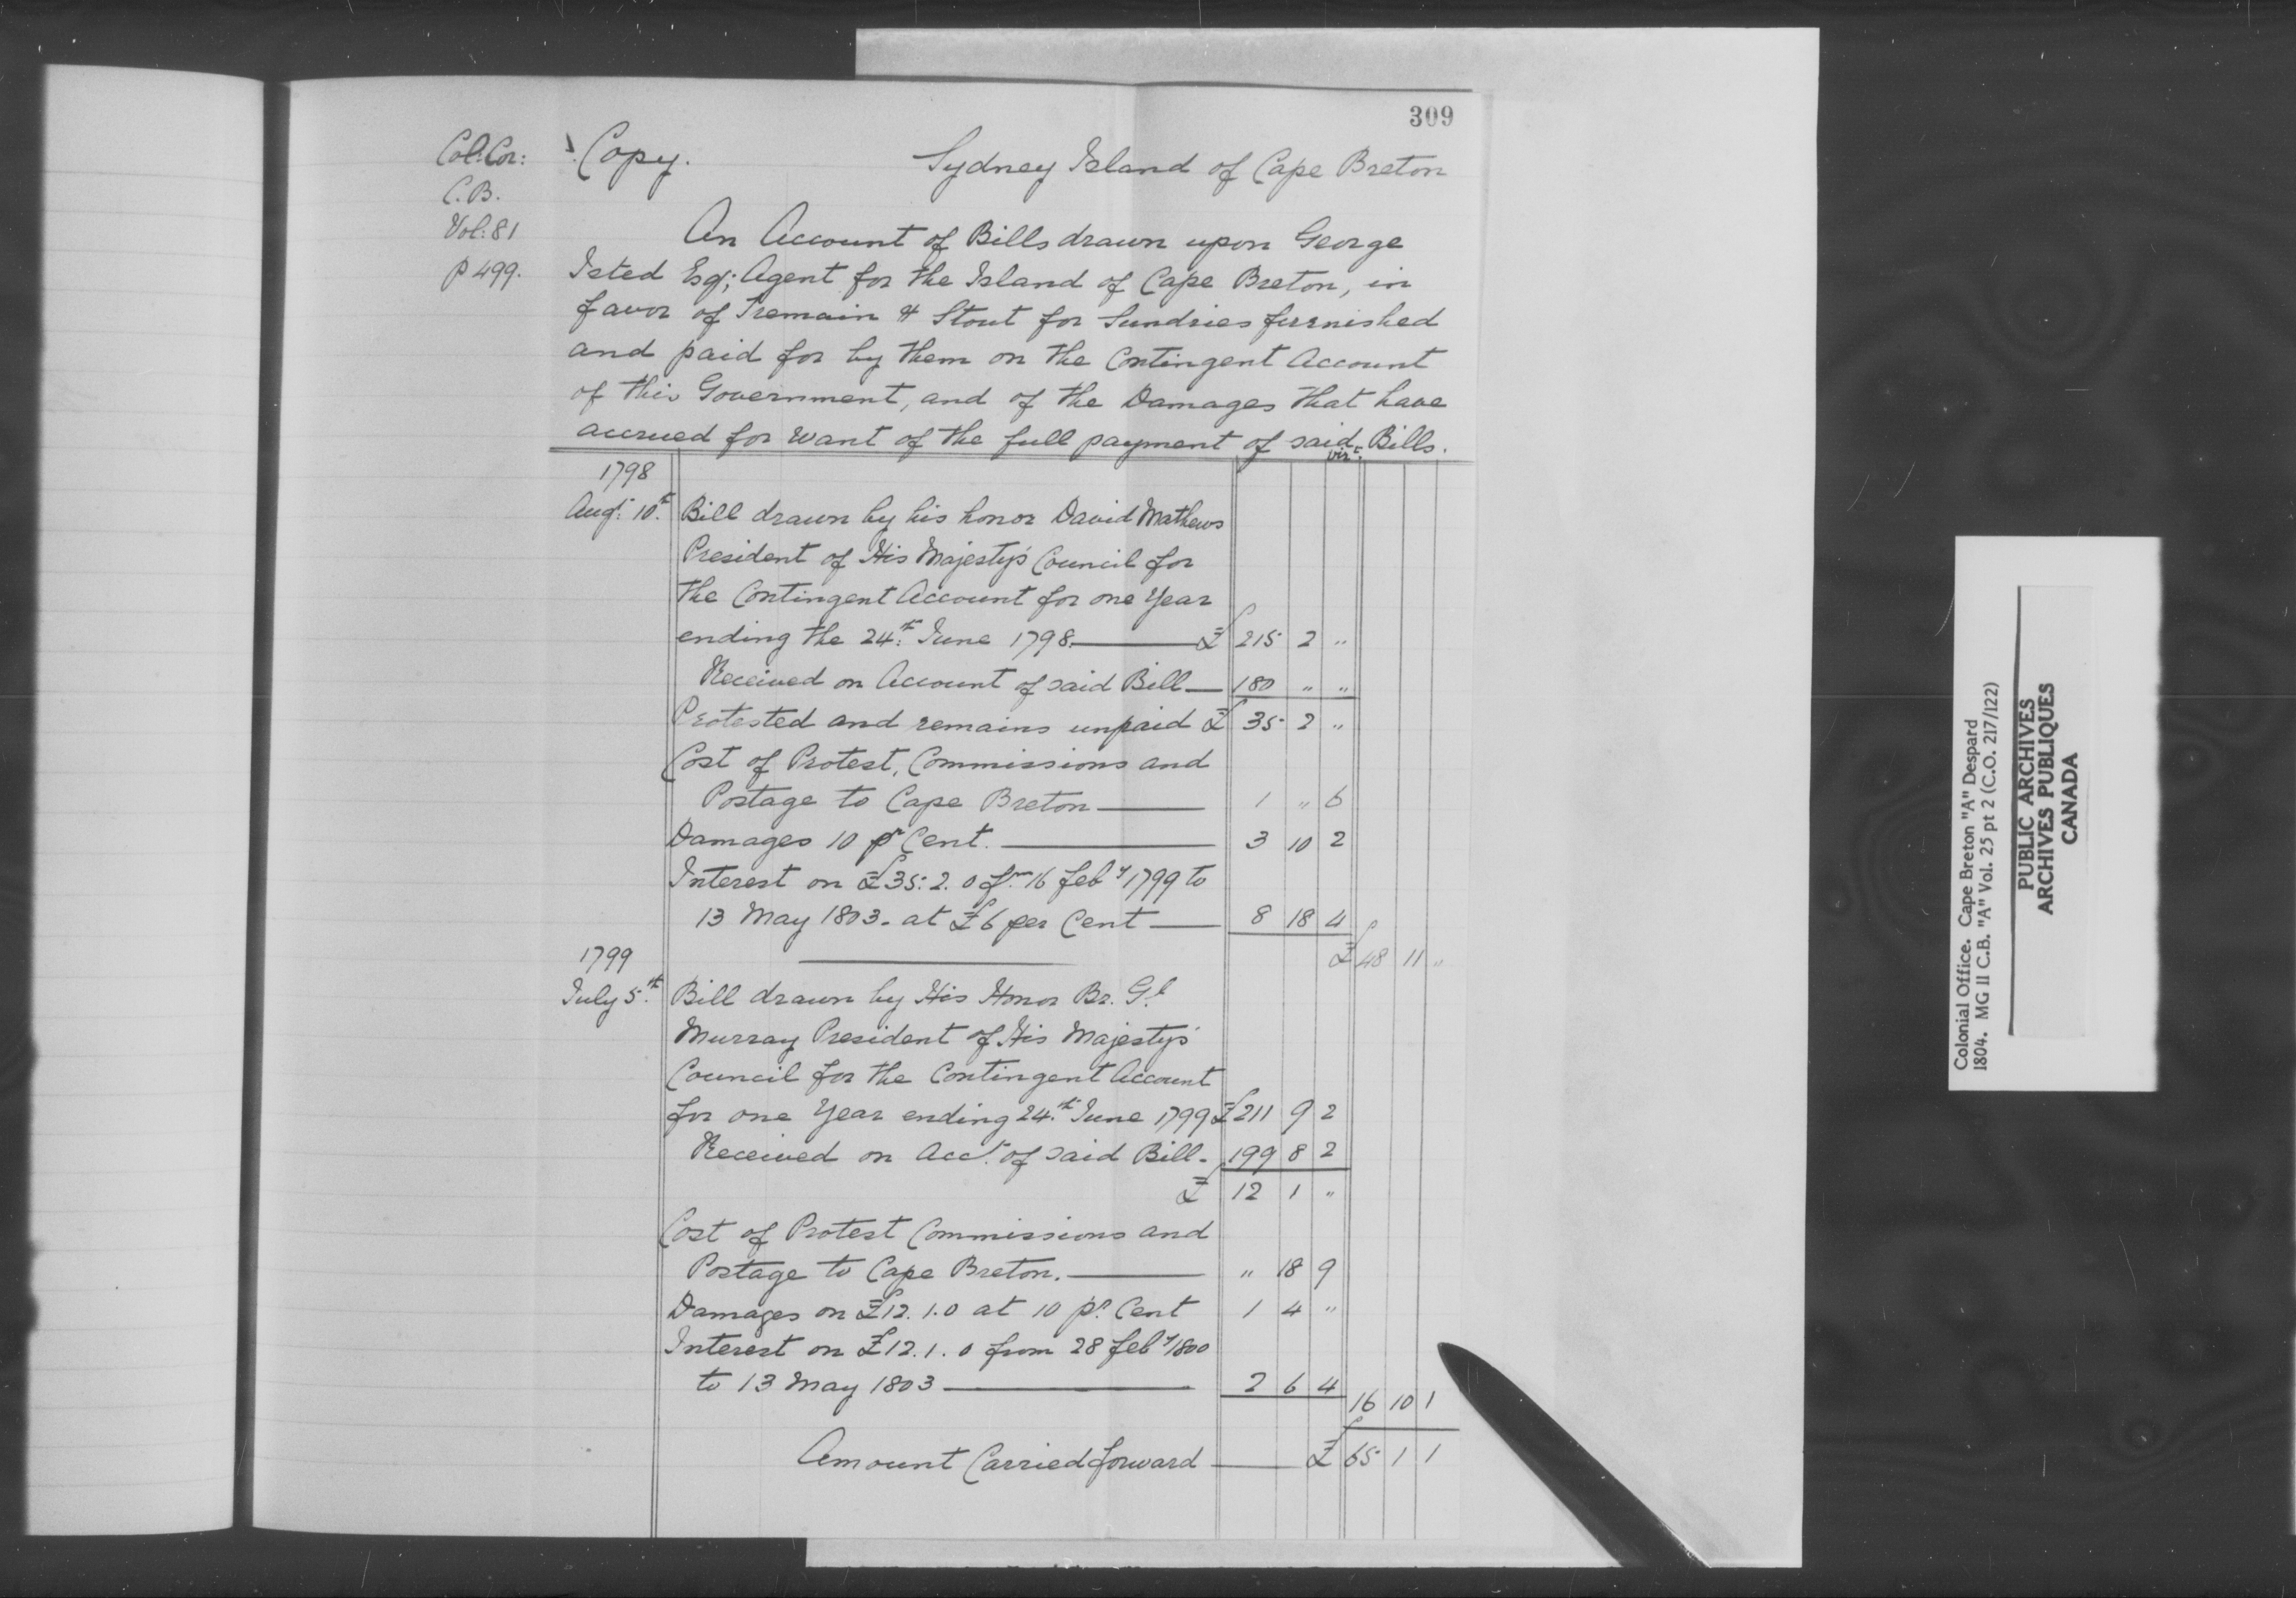 309
Col: Cor: Copy. Sydney Island of Cape Breton
C.B.
Vol: 81
p 499.
An Account of Bills drawn upon George
Isted Esq; Agent for the Island of Cape Breton, in
favor of Tremain & Stout for Sundries furnished
and paid for by them on the Contingent Account
of this Government, and of the Damages that have
accrued for want of the full payment of said Bills.
vizt:
1798
Augt 10th Bill drawn by his honor David Mathews
President of His Majesty's Council for
the Contingent Account for one Year
ending the 24th June 1798. £ 215 2 "
Received on Account of said Bill 180 " "
Protested and remains unpaid £ 35 2 "
Cost of Protest, Commissions and
Postage to Cape Breton 1 " 6
Damages 10 pr Cent. 3 10 2
Interest on £35: 2. 0 fm 16 feby 1799 to
13 May 1803. at £6 per Cent 8 18 4
£ 48 11 "
1799
July 5th Bill drawn by His Honor Br. Gl
Murray President of His Majesty's
Council for the Contingent Account
for one Year ending 24th June 1799 £ 211 9 2
Received on Acct. of said Bill. 199 8 2
£ 12 1 "
Cost of Protest Commissions and
Postage to Cape Breton. " 18 9
Damages on £12. 1. 0 at 10 pr Cent 1 4 "
Interest on £12. 1. 0 from 28 feby 1800
to 13 May 1803 2 6 4
16 10 1
Amount Carried forward £ 65 1 1
Colonial Office. Cape Breton "A" Despard
1804. MG 11 C.B. "A" Vol. 25 pt 2 (C.O. 217/122)
PUBLIC ARCHIVES
ARCHIVES PUBLIQUES
CANADA